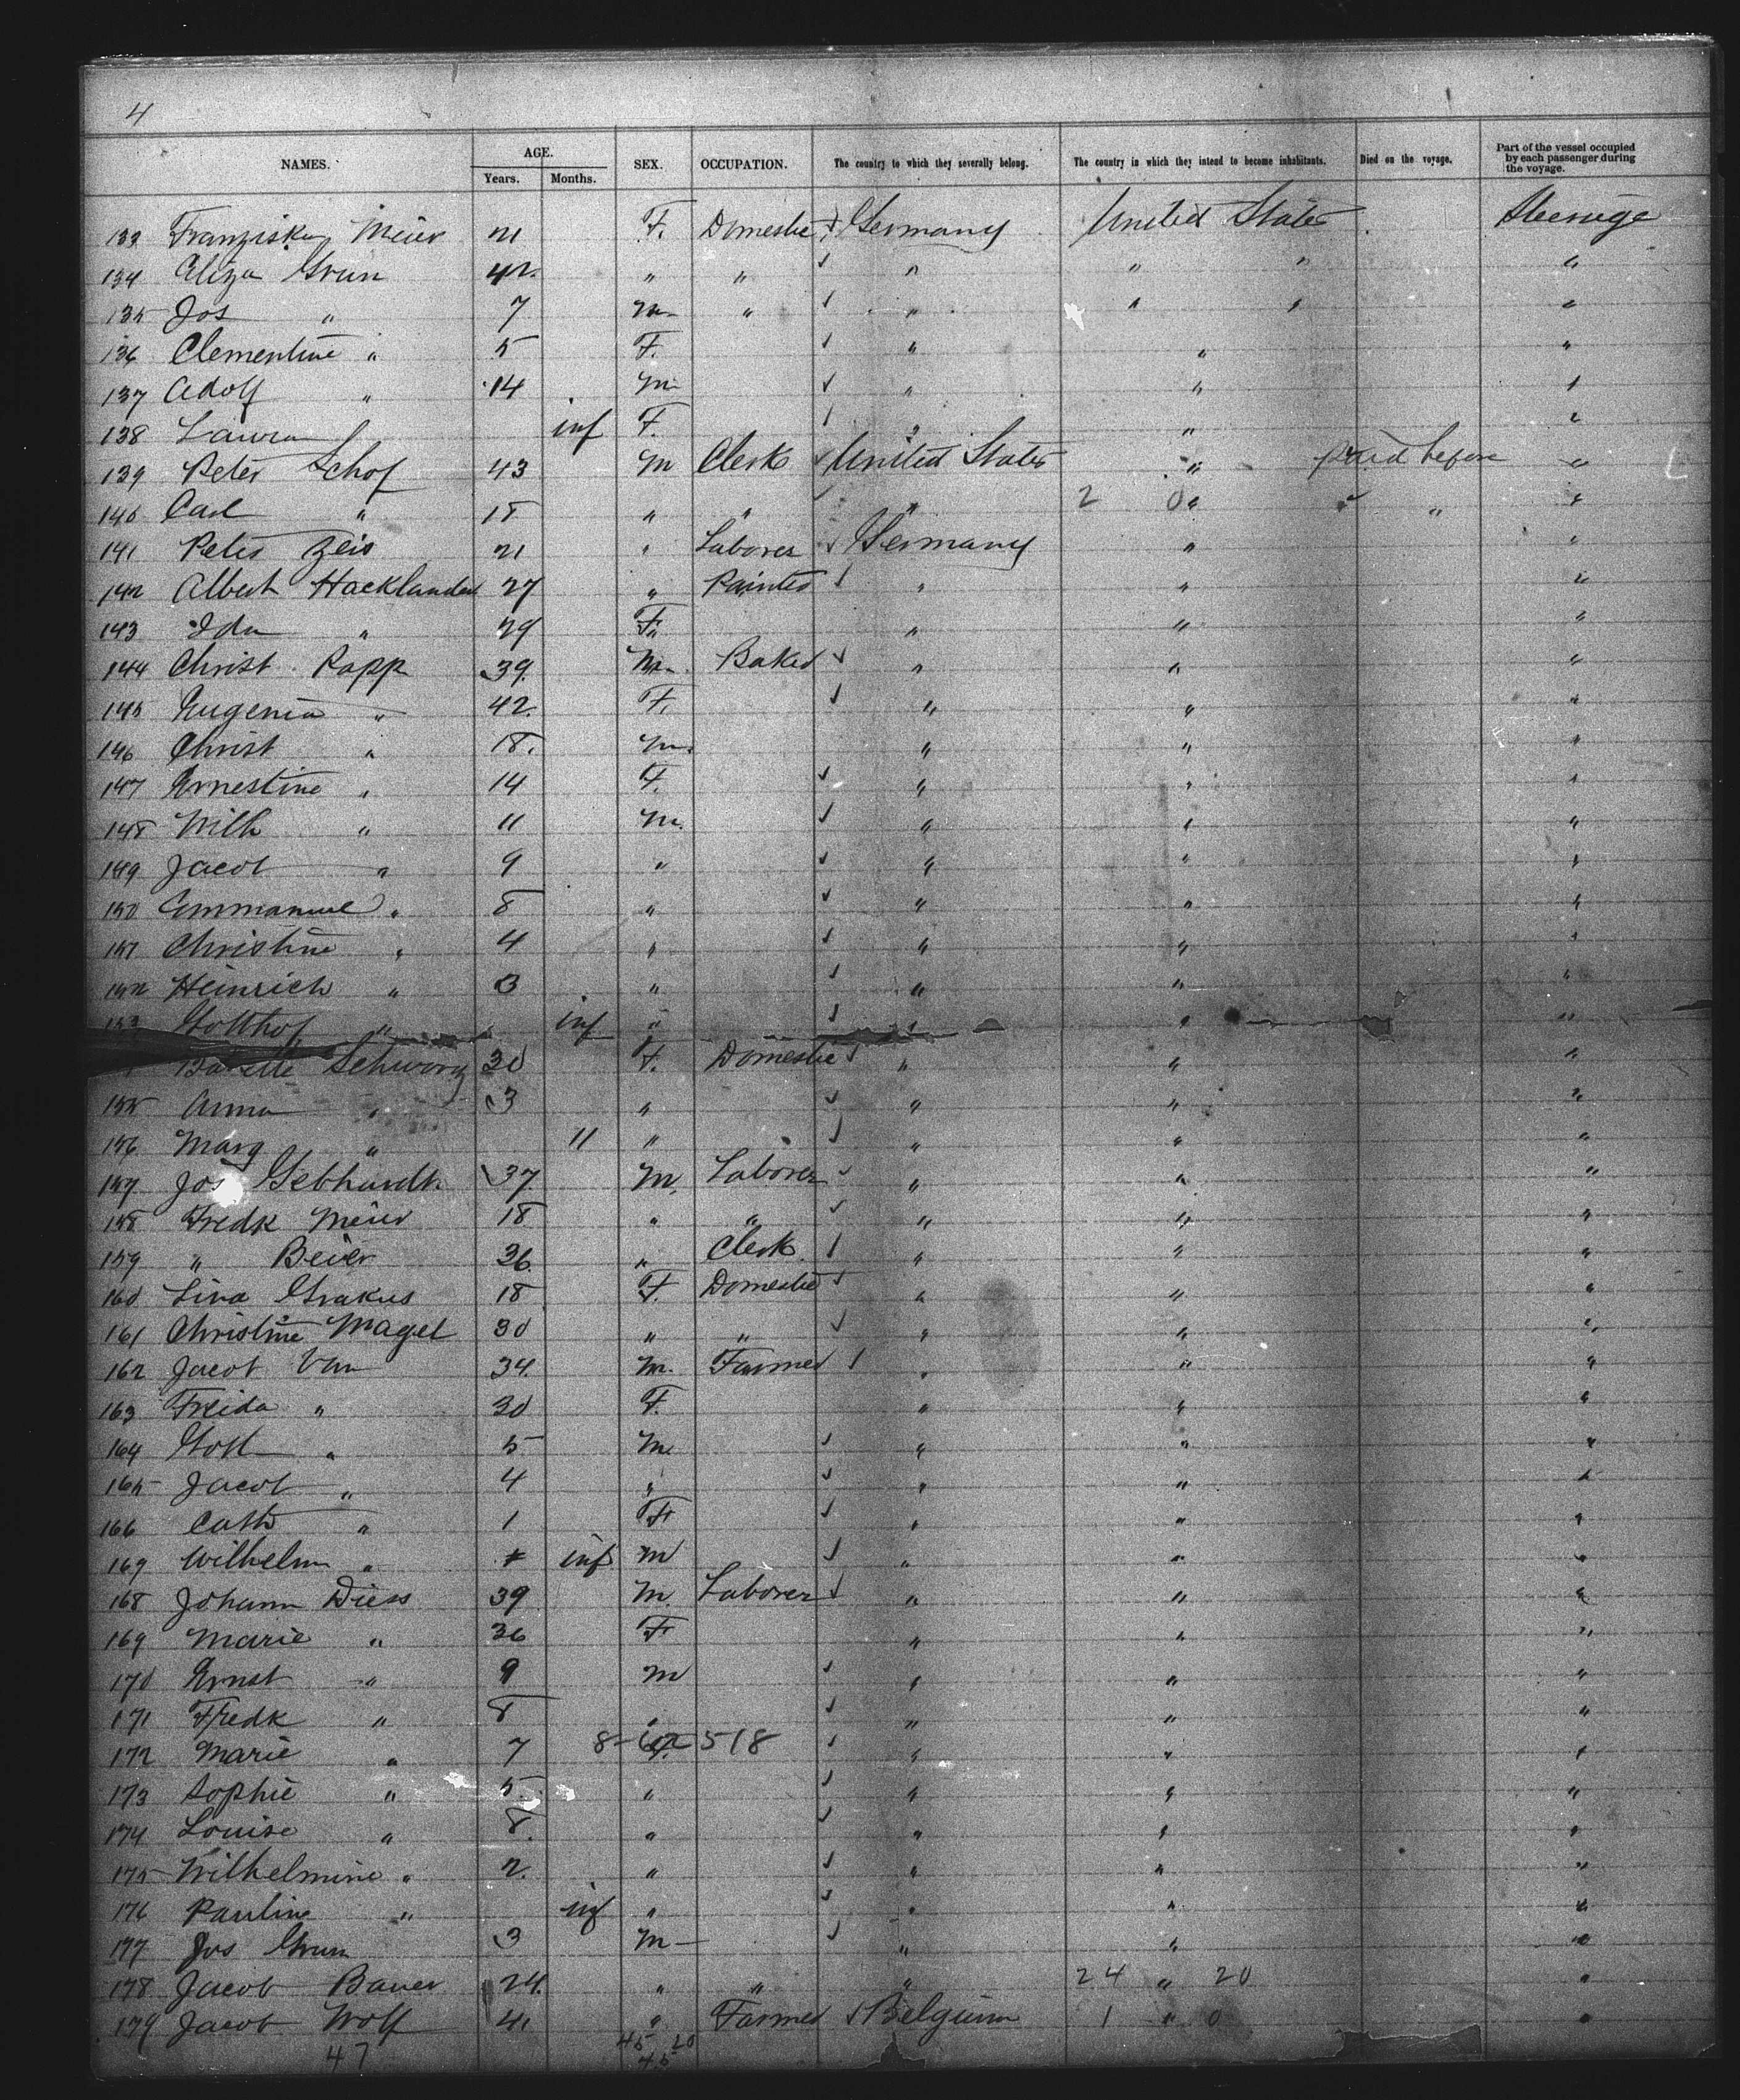 4
NAMES. AGE. Years. Months. SEX. OCCUPATION. The country to which they severally belong. The country in which they intend to become inhabitants. Died on the voyage. Part of the vessel occupied by each passenger during the voyage.
133 Franziska Meier 21 F. Domestic Germany United States Steerage
134 Eliza Grun 42. " " " " " "
135 Jos " 7 m " " " " "
136 Clementine " 5 F. " " "
137 Adolf " 14 m " " "
138 Laura inf F. " " "
139 Peter Schof 43 m Clerk United States " paid before "
140 Carl " 18 " " " 2 0 " " "
141 Peter Zeis 21 " Laborer Germany " "
142 Albert Hacklander 27 " Painter " " "
143 Ida " 29 F. " " "
144 Christ. Rapp 39. m. Baker " " "
145 Eugenia " 42. F. " " "
146 Christ " 18. m. " " "
147 Ernestine " 14 F. " " "
148 Wilh " 11 m. " " "
149 Jacob " 9 " " " "
150 Emmanuel " 8 " " " "
151 Christine " 4 " " " "
152 Heinrich " 3 " " " "
153 Gotthof " inf " " " "
Schwarz 30 F. Domestic " " "
155 Anna " 3 " " " "
156 Marg " 11 " " " "
157 Jos Gebhardt 37. m. Laborer " " "
158 Fredk Meier 18 " " " " "
159 " Beier 36. " Clerk " " "
160 Lina Grakus 18 F. Domestic " " "
161 Christine Magel 30 " " " " "
162 Jacob Van 34. m. Farmer " " "
163 Freida " 30 F. " " "
164 Gott " 5 m. " " "
165 Jacob " 4 " " " "
166 Cath " 1 F " " "
167 Wilhelm " inf m " " "
168 Johann Diess 39 m. Laborer " " "
169 Marie " 36 F " " "
170 Ernst " 9 m " " "
171 Fredk " 8 " " " "
172 Marie " 7 8-62518 " " "
173 Sophie " 5 " " " "
174 Louise " 8. " " " "
175 Wilhelmine " 2. " " " "
176 Pauline " inf " " " "
177 Jos Grun 3 m " " "
178 Jacob Bauer 24. " " " 24 " 20 "
179 Jacob Wolf 41 " Farmer Belgium 1 " 0 "
47 45 20
45